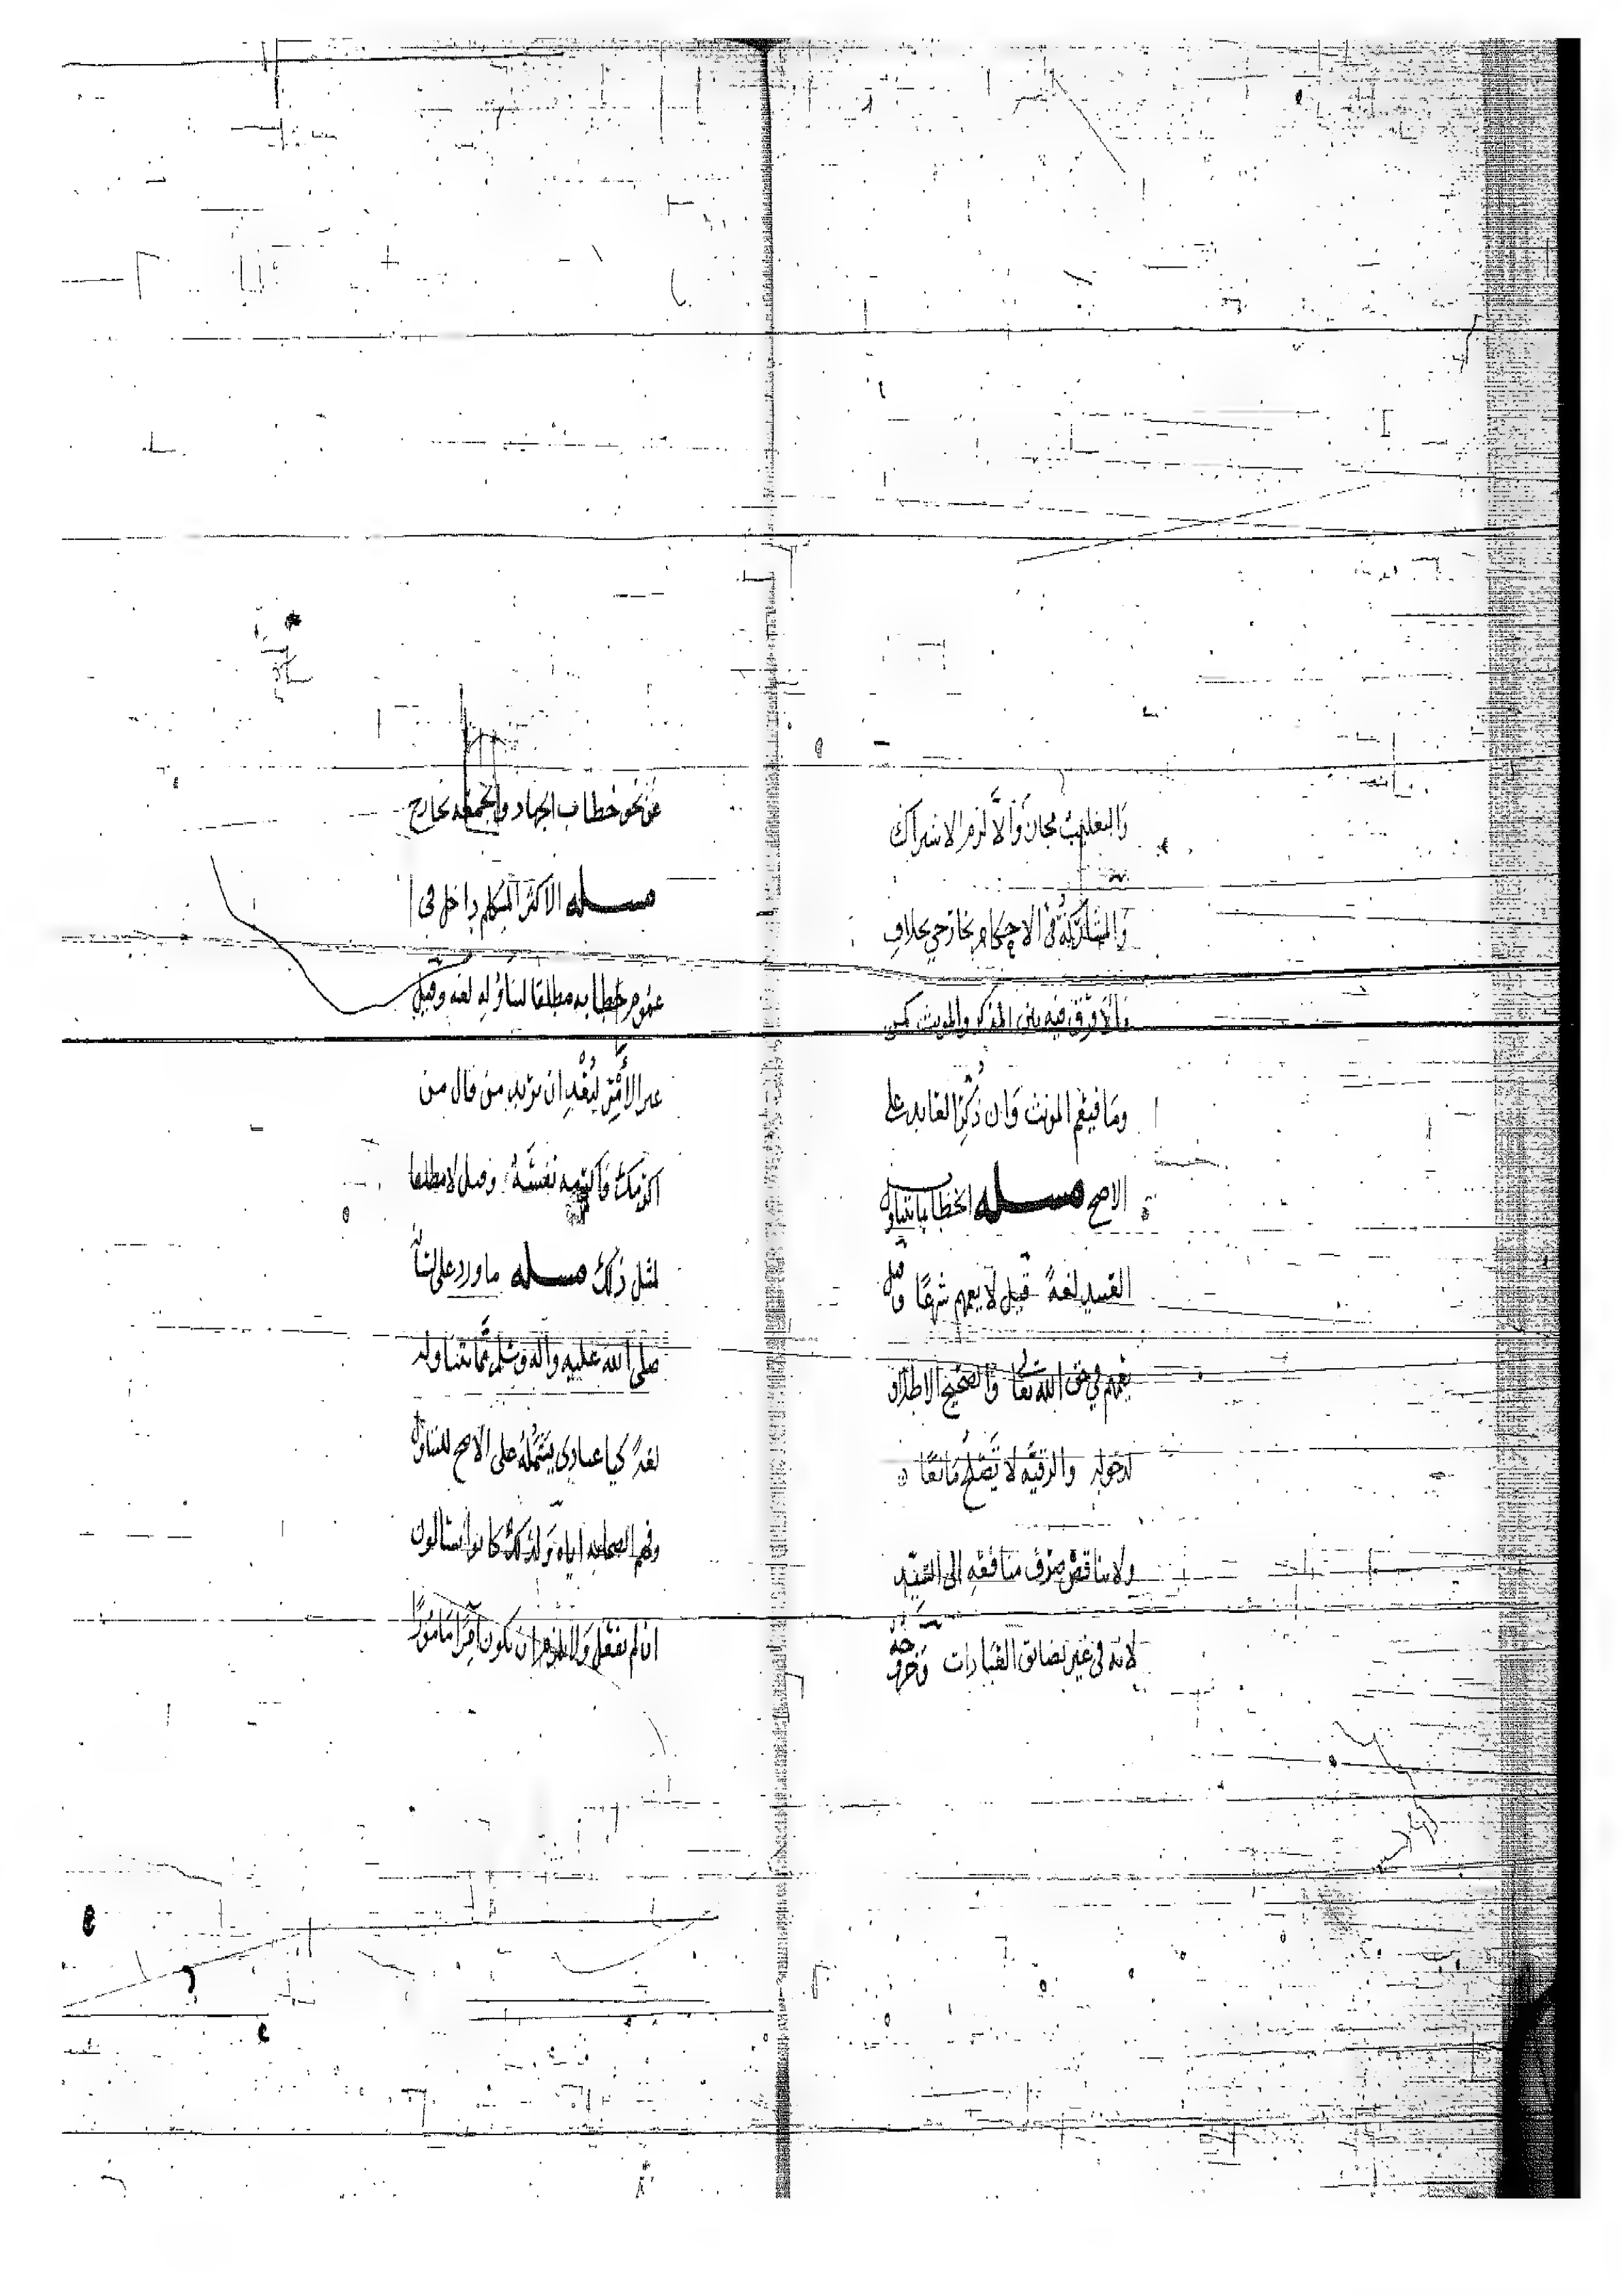 والتغليب مجاز وَالَّا لزم الاشراك
وَالمشاركةُ في الاحكام بخارجي بخلاف
وَالَّا فرق فيه بين المذكر والمونث كمن
ومَا فيعُم المونث وَان ذُكِّر العايد على
الاصح مسله الخطاب بما يتناول
العبيد لغةً قيل لا يعمهم شرعًا وقيل
يعمهم في حق الله تعالى وَالصحيح الاطلاق
لدخوله والرقيَّه لا تَصْلحُ مَانعًا
ولا يناقض صرف منافعه الى السّيّد
لانه في غير تضائق العبادات وخروجه
عن نحو خطاب الجهاد والجمعه بخارج
مسله الاكثر المتكلم داخل في
عموم خطابه مطلقا لتناوُلِهِ لغه وقيل
غير الأَمْرِ ليُعْدِ ان يريد من قال من
اكرمك فاكرمه نفسَهُ وقيل لا مطلقا
لمثل ذلك مسله ما ورد على لسانه
صلى الله عليه وَاله وَسَلم مما يتناوله
لغةً كيا عبادي يَشْمَلُهُ على الاصح للتناول
وفهم الصحابه اياه وَلذلك كانوا يسالون
ان لم يفعل وَلا يلزم ان يكون آمِرًا مَامُورًا